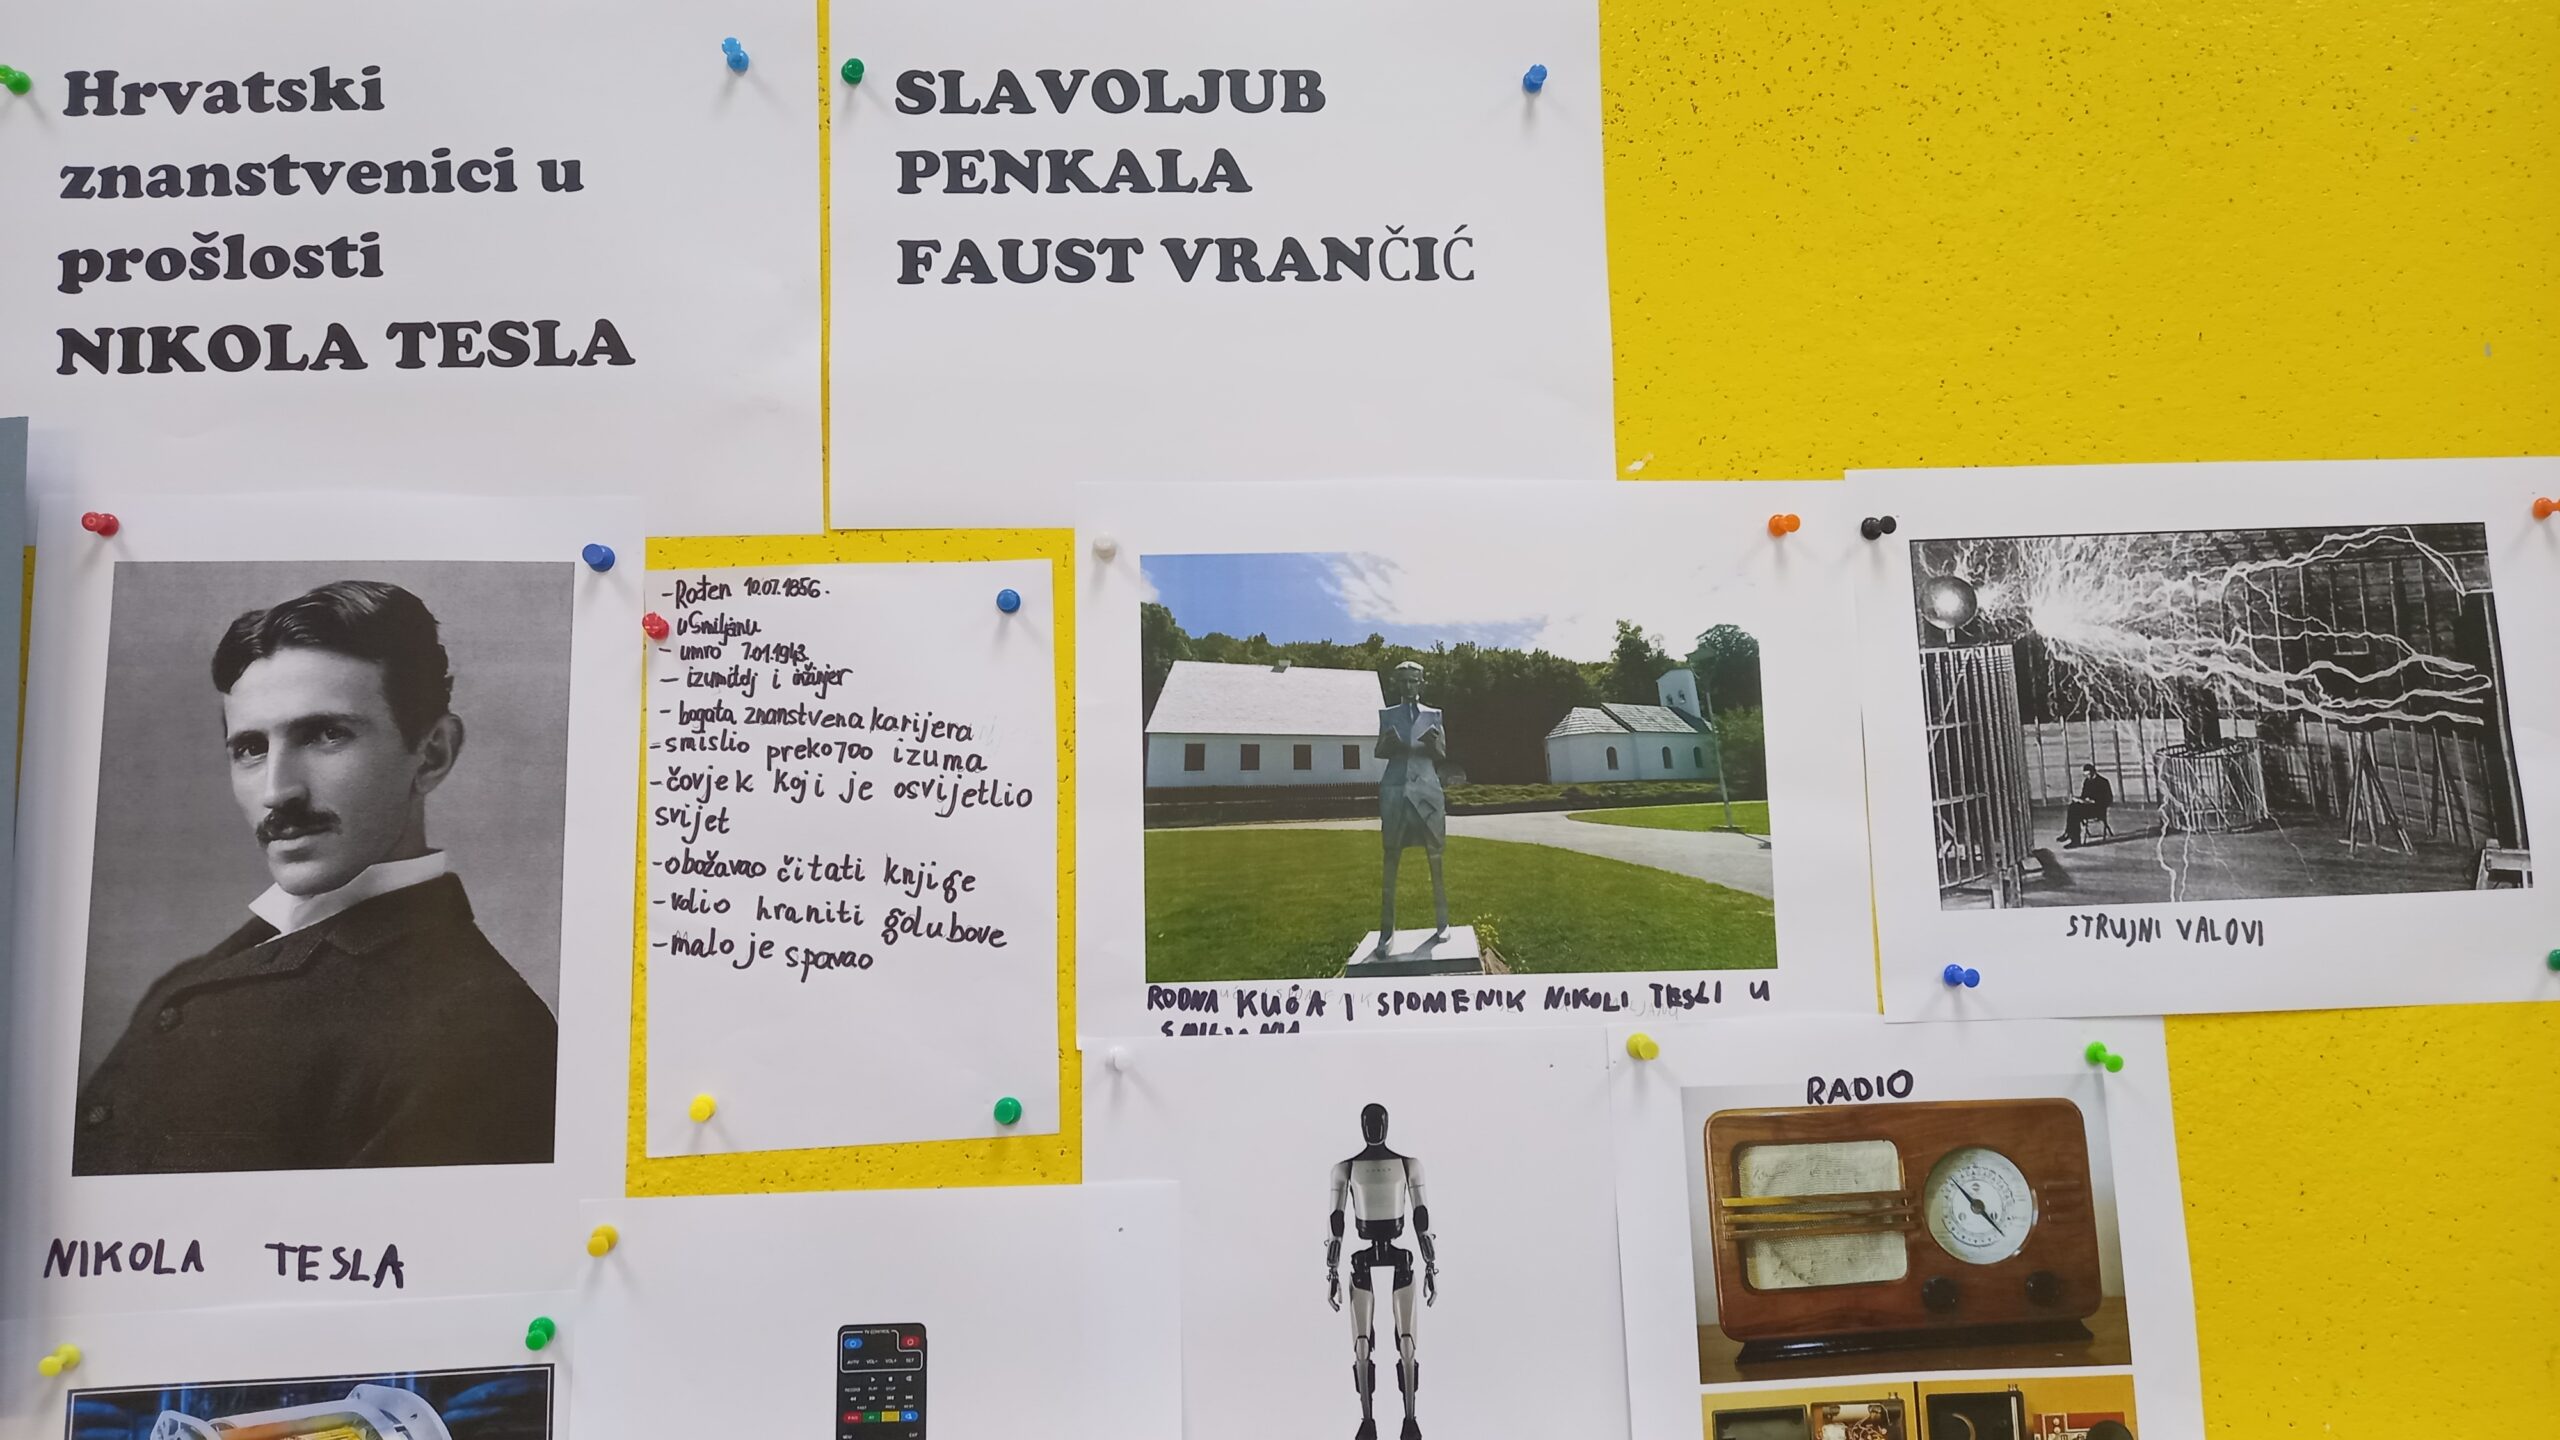 Hrvatski
znanstvenici u
prošlosti
NIKOLA TESLA
SLAVOLJUB
PENKALA
FAUST VRANČIĆ
-Rođen 10.07.1856.
u Smiljanu
- umro 7.01.1943.
- izumitelj i inžinjer
- bogata znanstvena karijera
-smislio preko 700 izuma
-čovjek koji je osvijetlio
svijet
-obožavao čitati knjige
-volio hraniti golubove
-malo je spavao
NIKOLA TESLA
RODNA KUĆA I SPOMENIK NIKOLI TESLI U
STRUJNI VALOVI
RADIO
TV CONTROL
AV/TV VOL- VOL+ SET